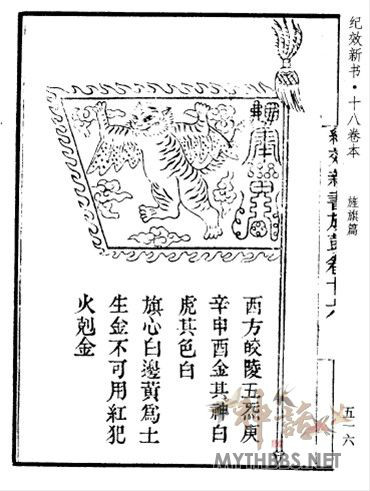 纪效新书·十八卷本 旌旗篇
西方皎陵五炁庚
辛申酉金其神白
虎其色白
旗心白邊黃爲土
生金不可用紅犯
火剋金
五一六
MYTHBBS.NET